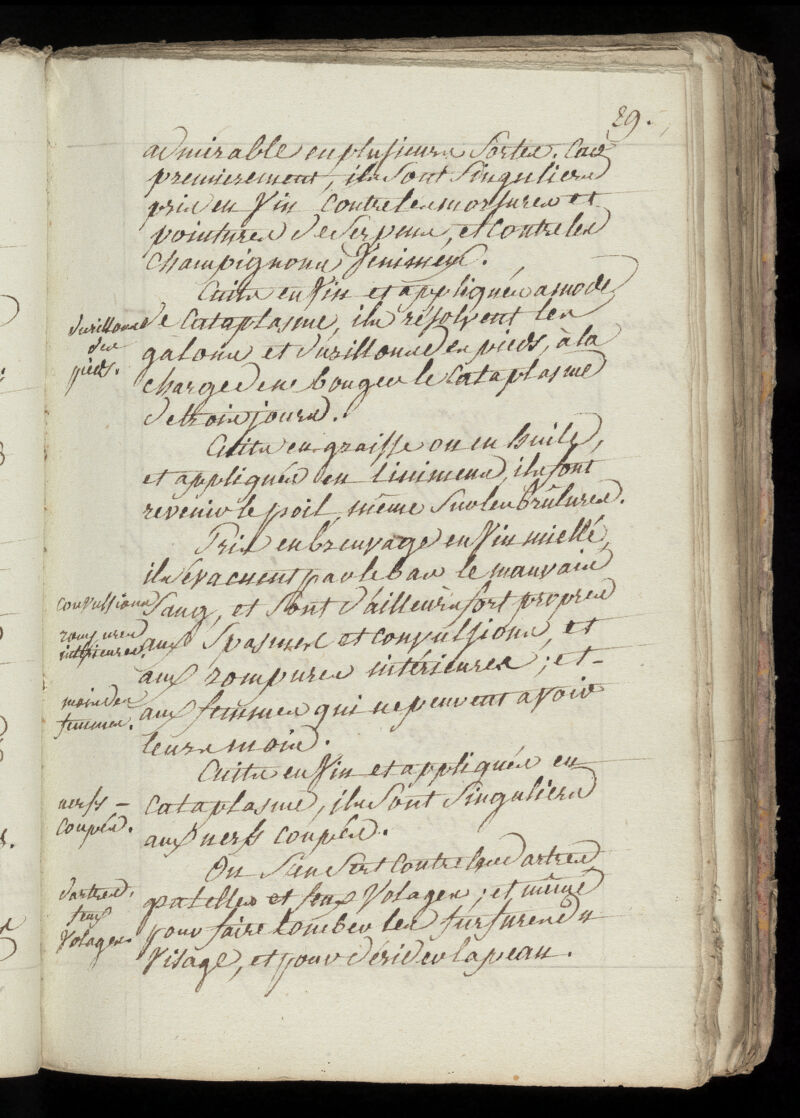 29.
admirable en plusieurs sortes. Car
premierement, ils sont singuliers
pris en Vin contre les morsures et
pointures de Serpens, et contre les
champignons Vénimeux.
Cuits en Vin et appliqués a mode
durillons
des
pieds.
de Cataplasme, ils résolvent les
galons et durillons des pieds, à la
charge de ne bouger le Cataplasme
de trois jours.
Cuits en graisse ou en huile,
et appliqués en liniment, ils font
revenir le poil, même sur les brûlures.
Pris en breuvage en Vin miellé,
ils évacuent par le bas le mauvais
convulsions
rompures
intérieures
sang, et sont d'ailleurs fort propres
aux Spasmes et convulsions, et
aux rompures intérieures; et
mois des
femmes.
aux femmes qui ne peuvent avoir
leurs mois.
Cuits en Vin et appliqués en
nerfs
coupés.
Cataplasme, ils sont singuliers
aux nerfs coupés.
On s'en sert contre les dartres
dartres,
feux
Volages
patelles et feux Volages; et même
pour faire tomber les furfures du
Visage, et pour dérider la peau.